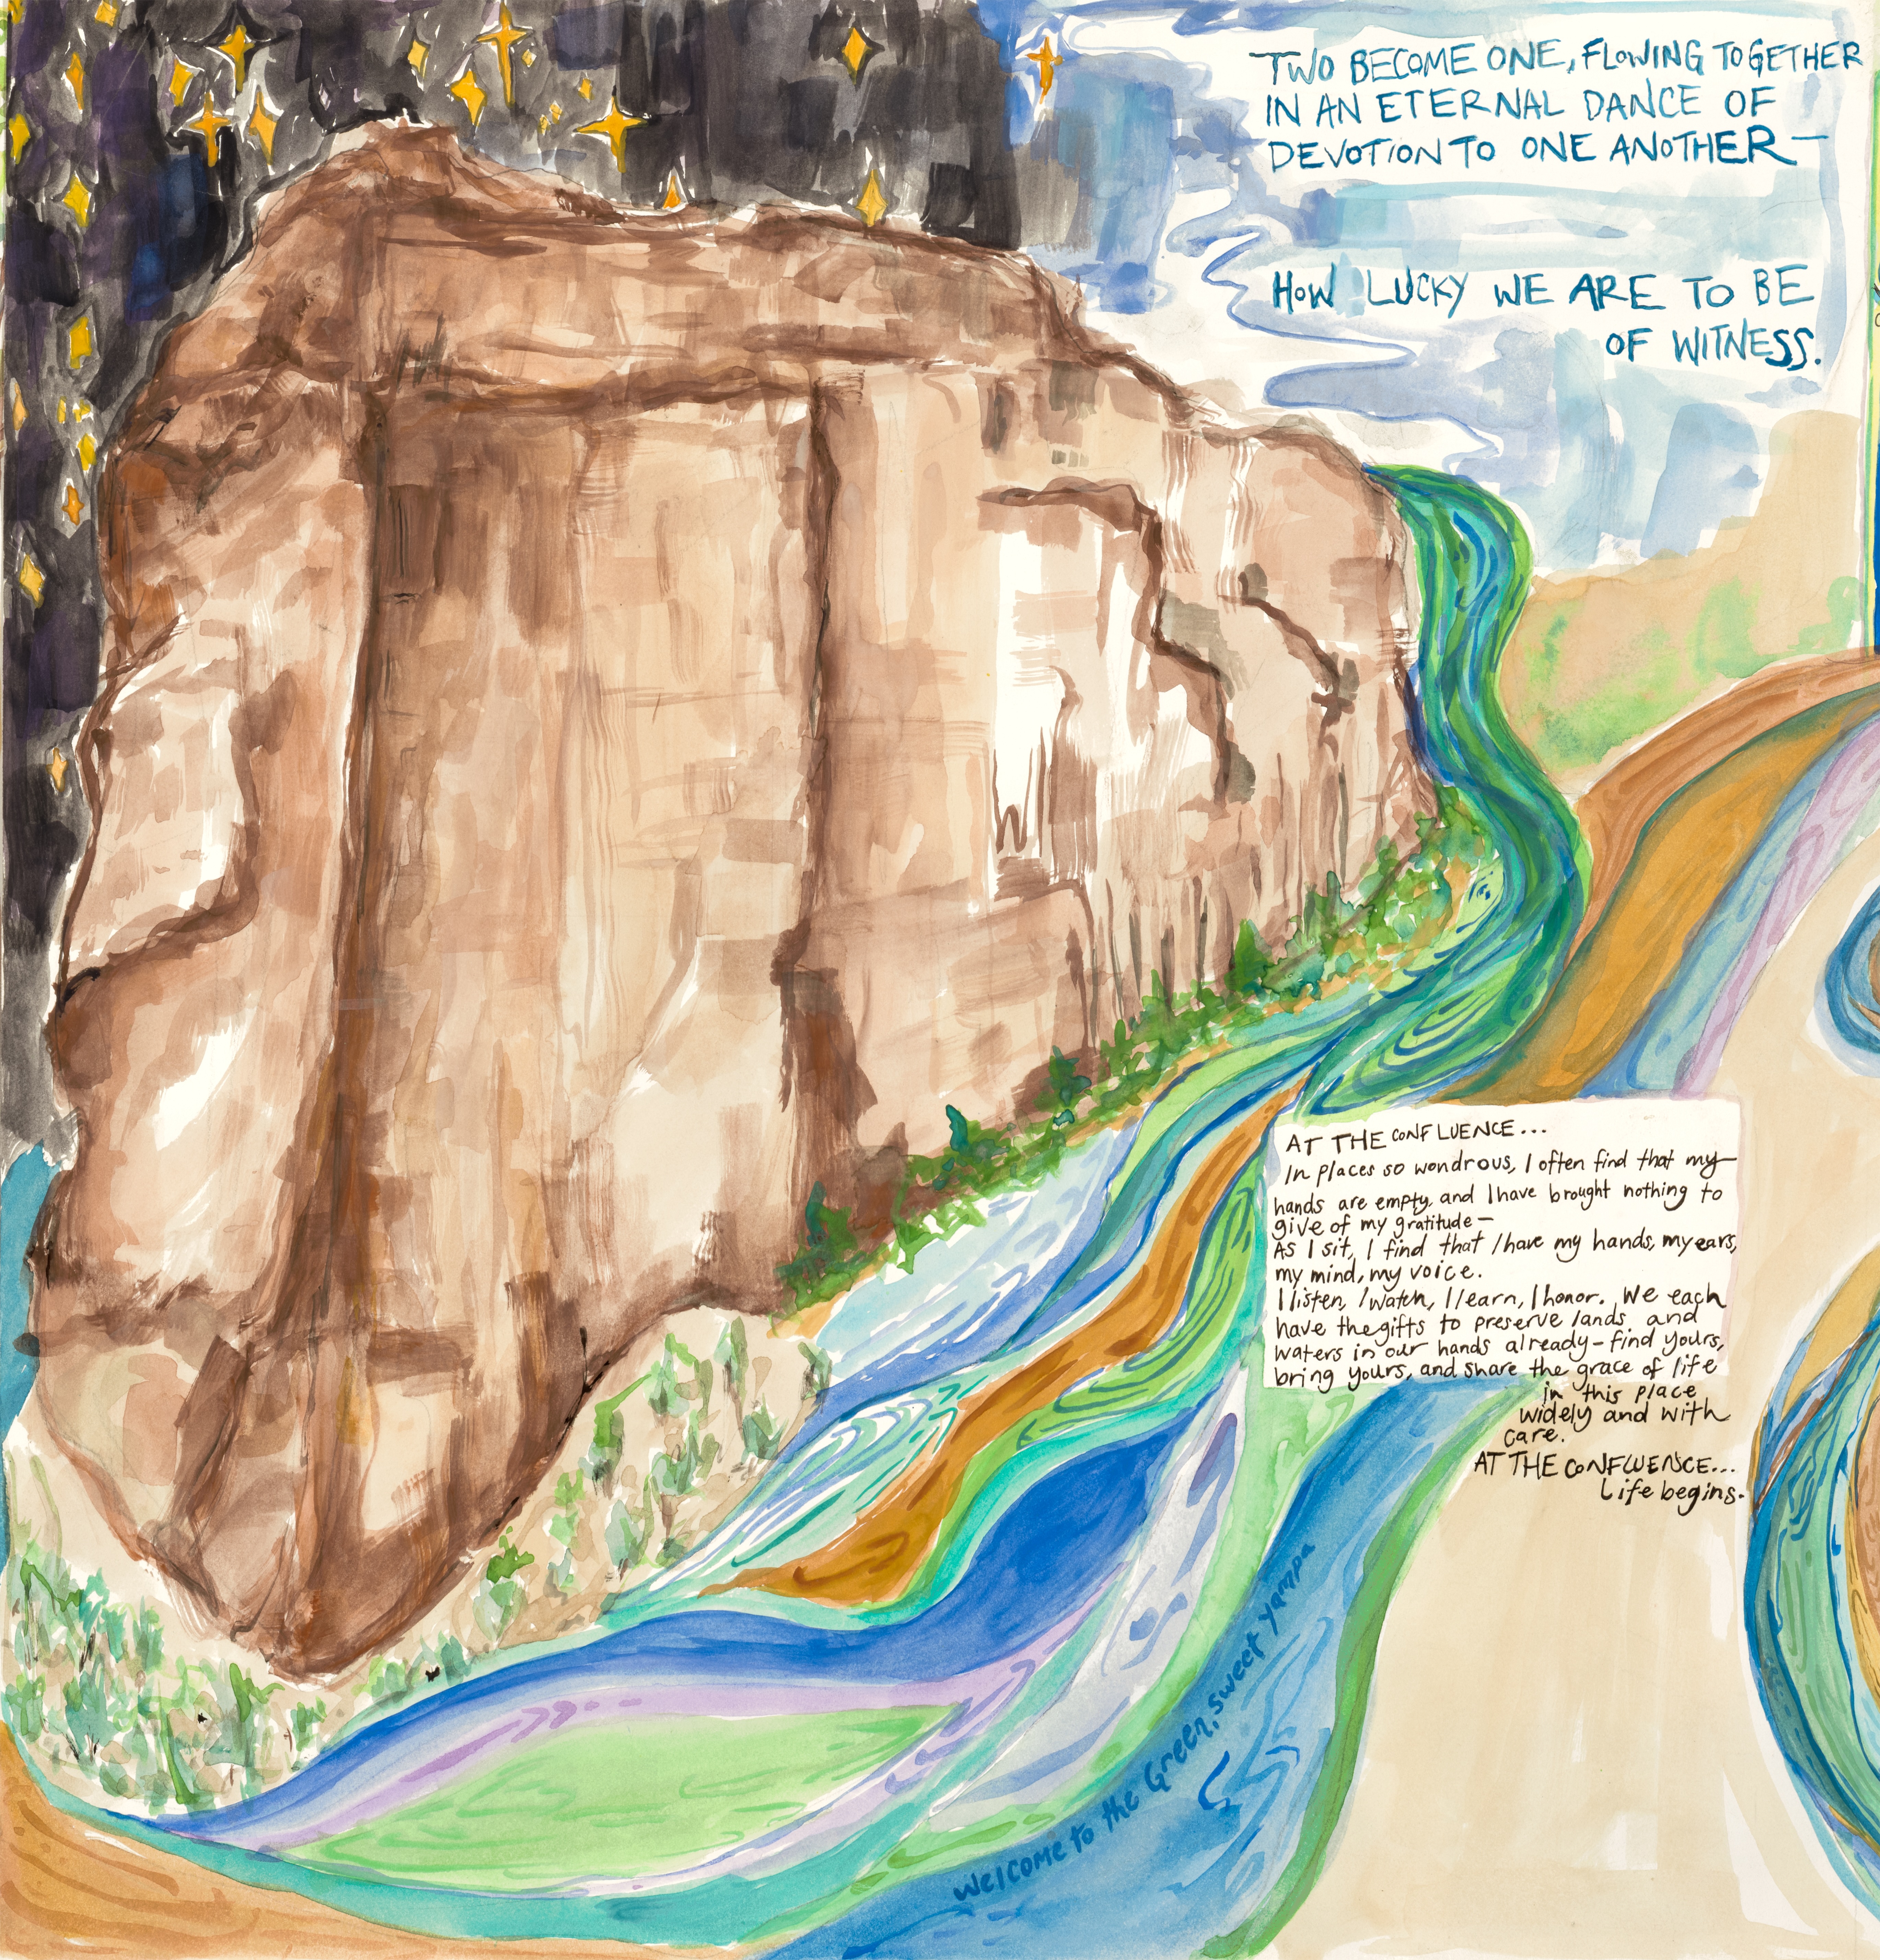 TWO BECOME ONE, FLOWING TOGETHER
IN AN ETERNAL DANCE OF
DEVOTION TO ONE ANOTHER—
HOW LUCKY WE ARE TO BE
OF WITNESS.
AT THE CONFLUENCE...
In places so wondrous, I often find that my
hands are empty, and I have brought nothing to
give of my gratitude—
As I sit, I find that I have my hands, my ears,
my mind, my voice.
I listen, I watch, I learn, I honor. We each
have the gifts to preserve lands and
waters in our hands already – find yours,
bring yours, and share the grace of life
in this place
widely and with
care.
AT THE CONFLUENCE...
Life begins.
Welcome to the Green, sweet Yampa